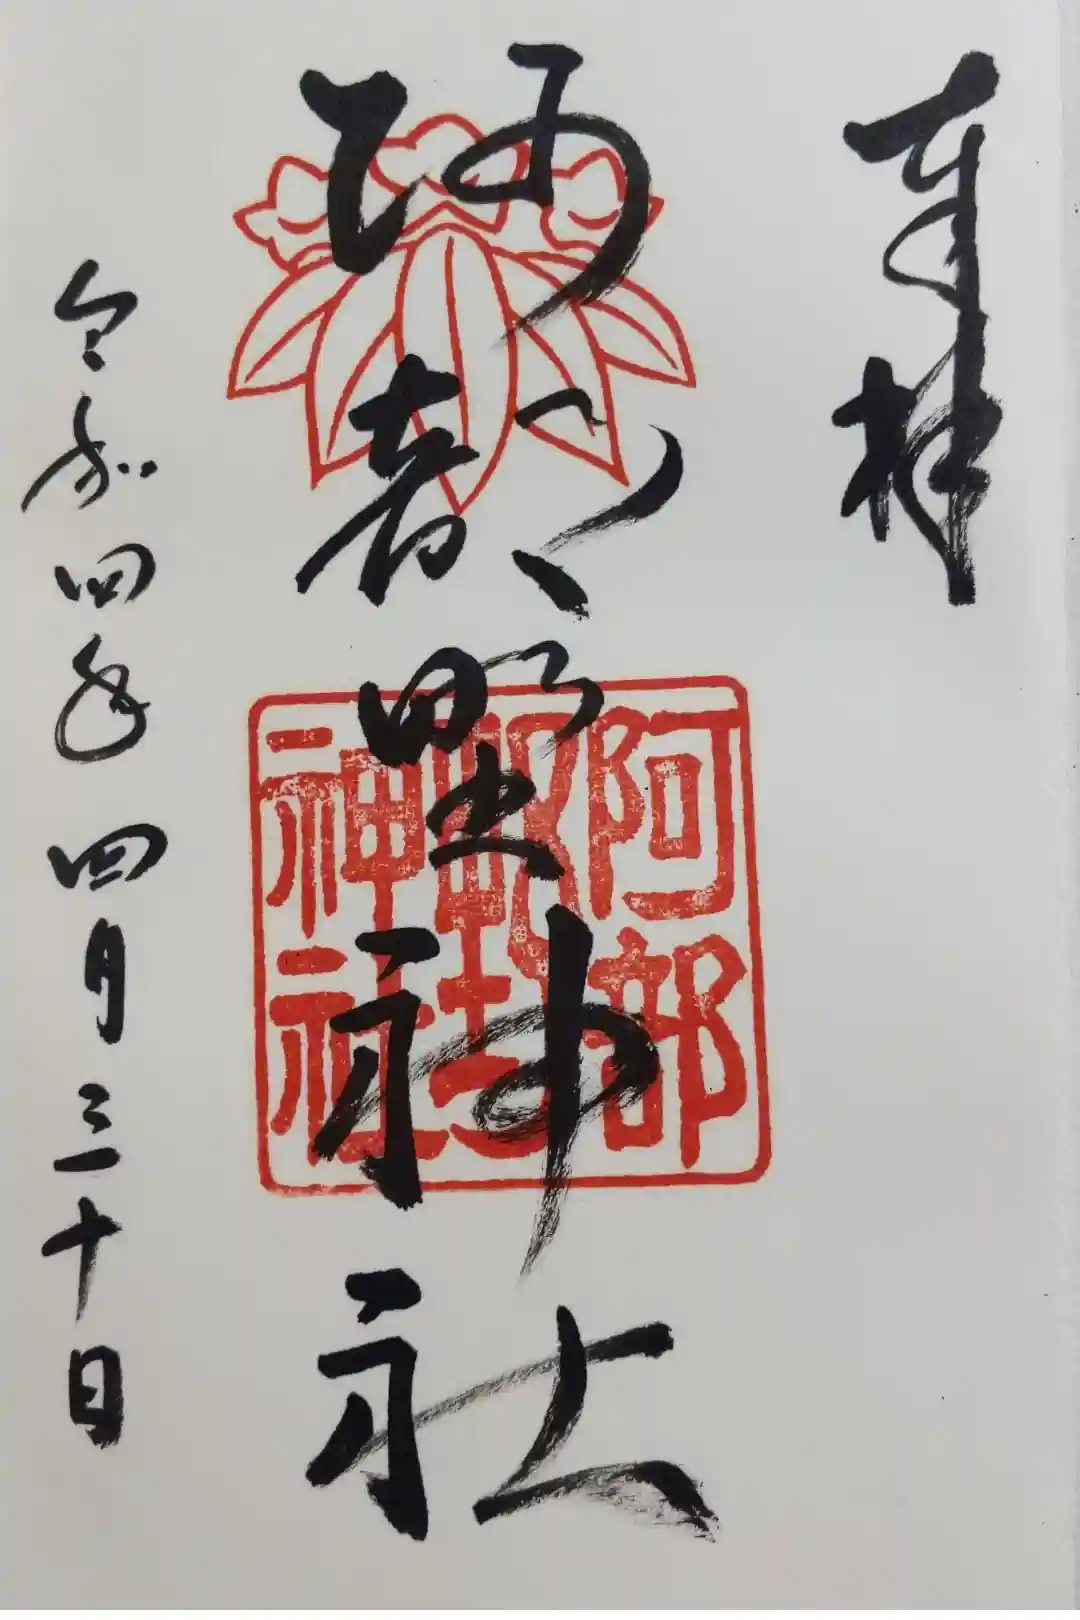 奉拝
阿部野神社
令和四年四月三十日
阿部
野
神社